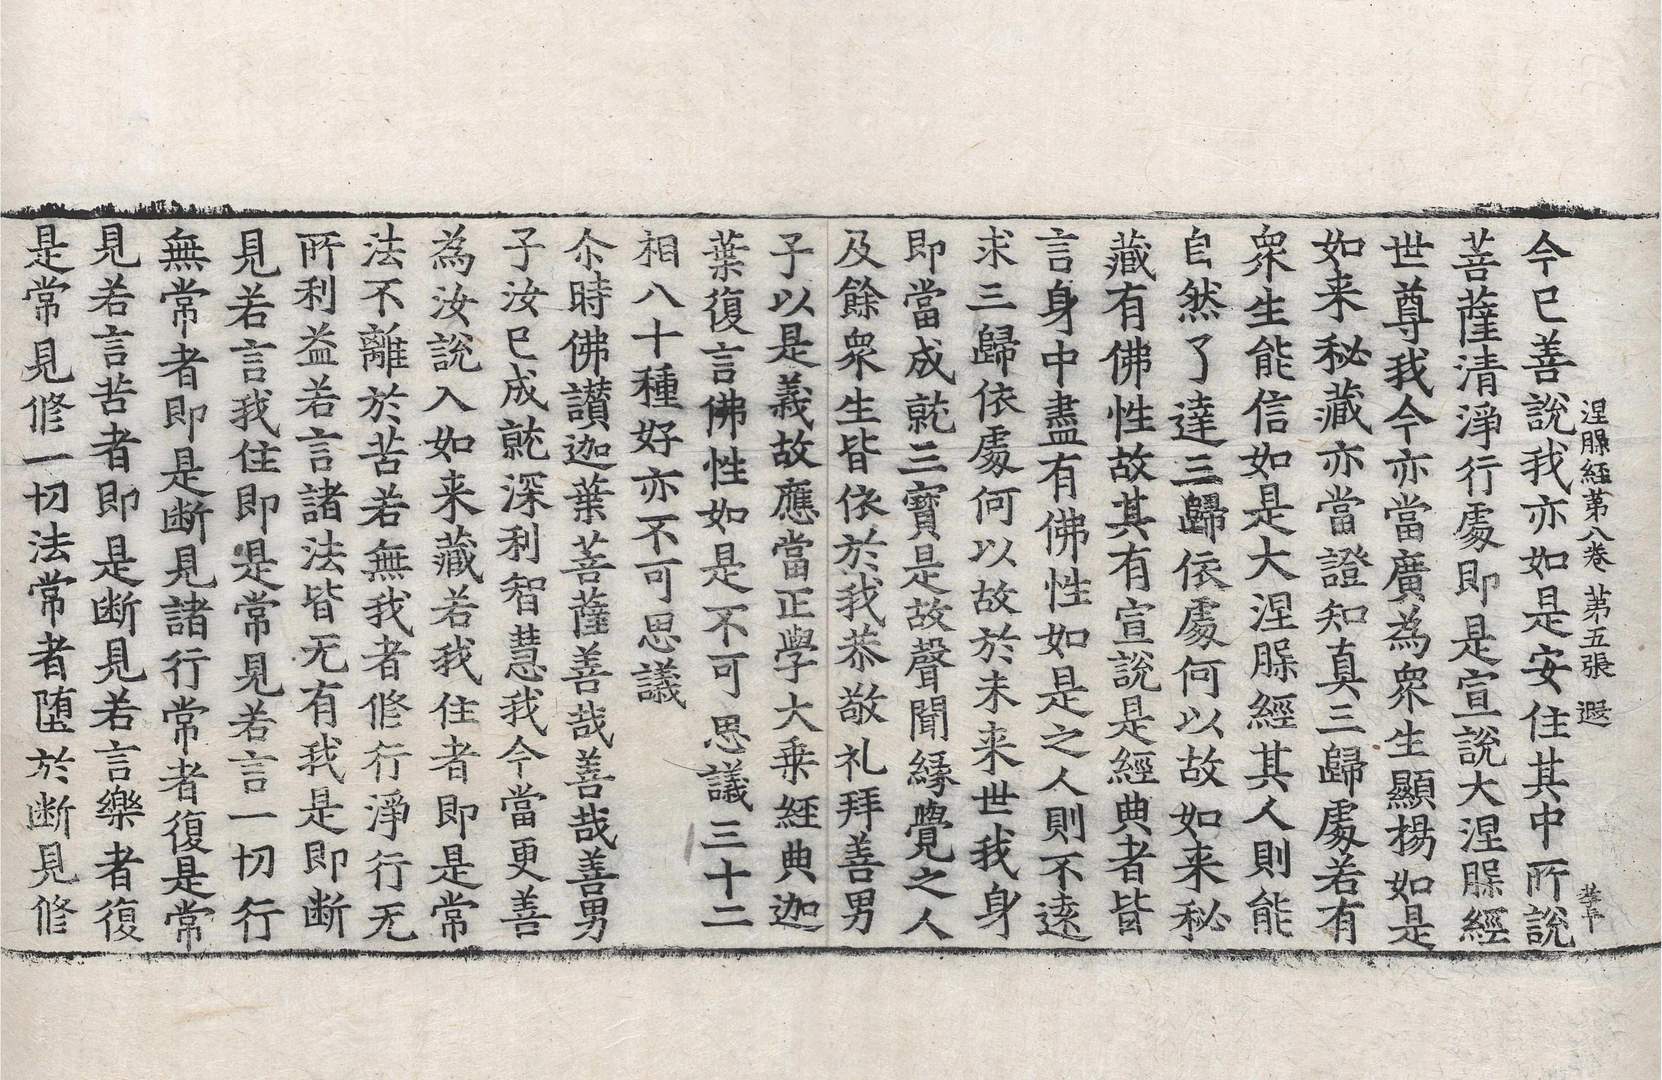 涅槃經第八卷 第五張 遐
今已善說我亦如是安住其中所說
菩薩清淨行處即是宣說大涅槃經
世尊我今亦當廣為衆生顯揚如是
如来秘藏亦當證知真三歸處若有
衆生能信如是大涅槃經其人則能
自然了達三歸依處何以故如来秘
藏有佛性故其有宣說是經典者皆
言身中盡有佛性如是之人則不遠
求三歸依處何以故於未来世我身
即當成就三寶是故聲聞縁覺之人
及餘衆生皆依於我恭敬礼拜善男
子以是義故應當正學大乗經典迦
葉復言佛性如是不可思議三十二
相八十種好亦不可思議
尒時佛讃迦葉菩薩善哉善哉善男
子汝已成就深利智慧我今當更善
為汝說入如来藏若我住者即是常
法不離於苦若無我者修行淨行无
所利益若言諸法皆无有我是即断
見若言我住即是常見若言一切行
無常者即是断見諸行常者復是常
見若言苦者即是断見若言樂者復
是常見修一切法常者堕於断見修